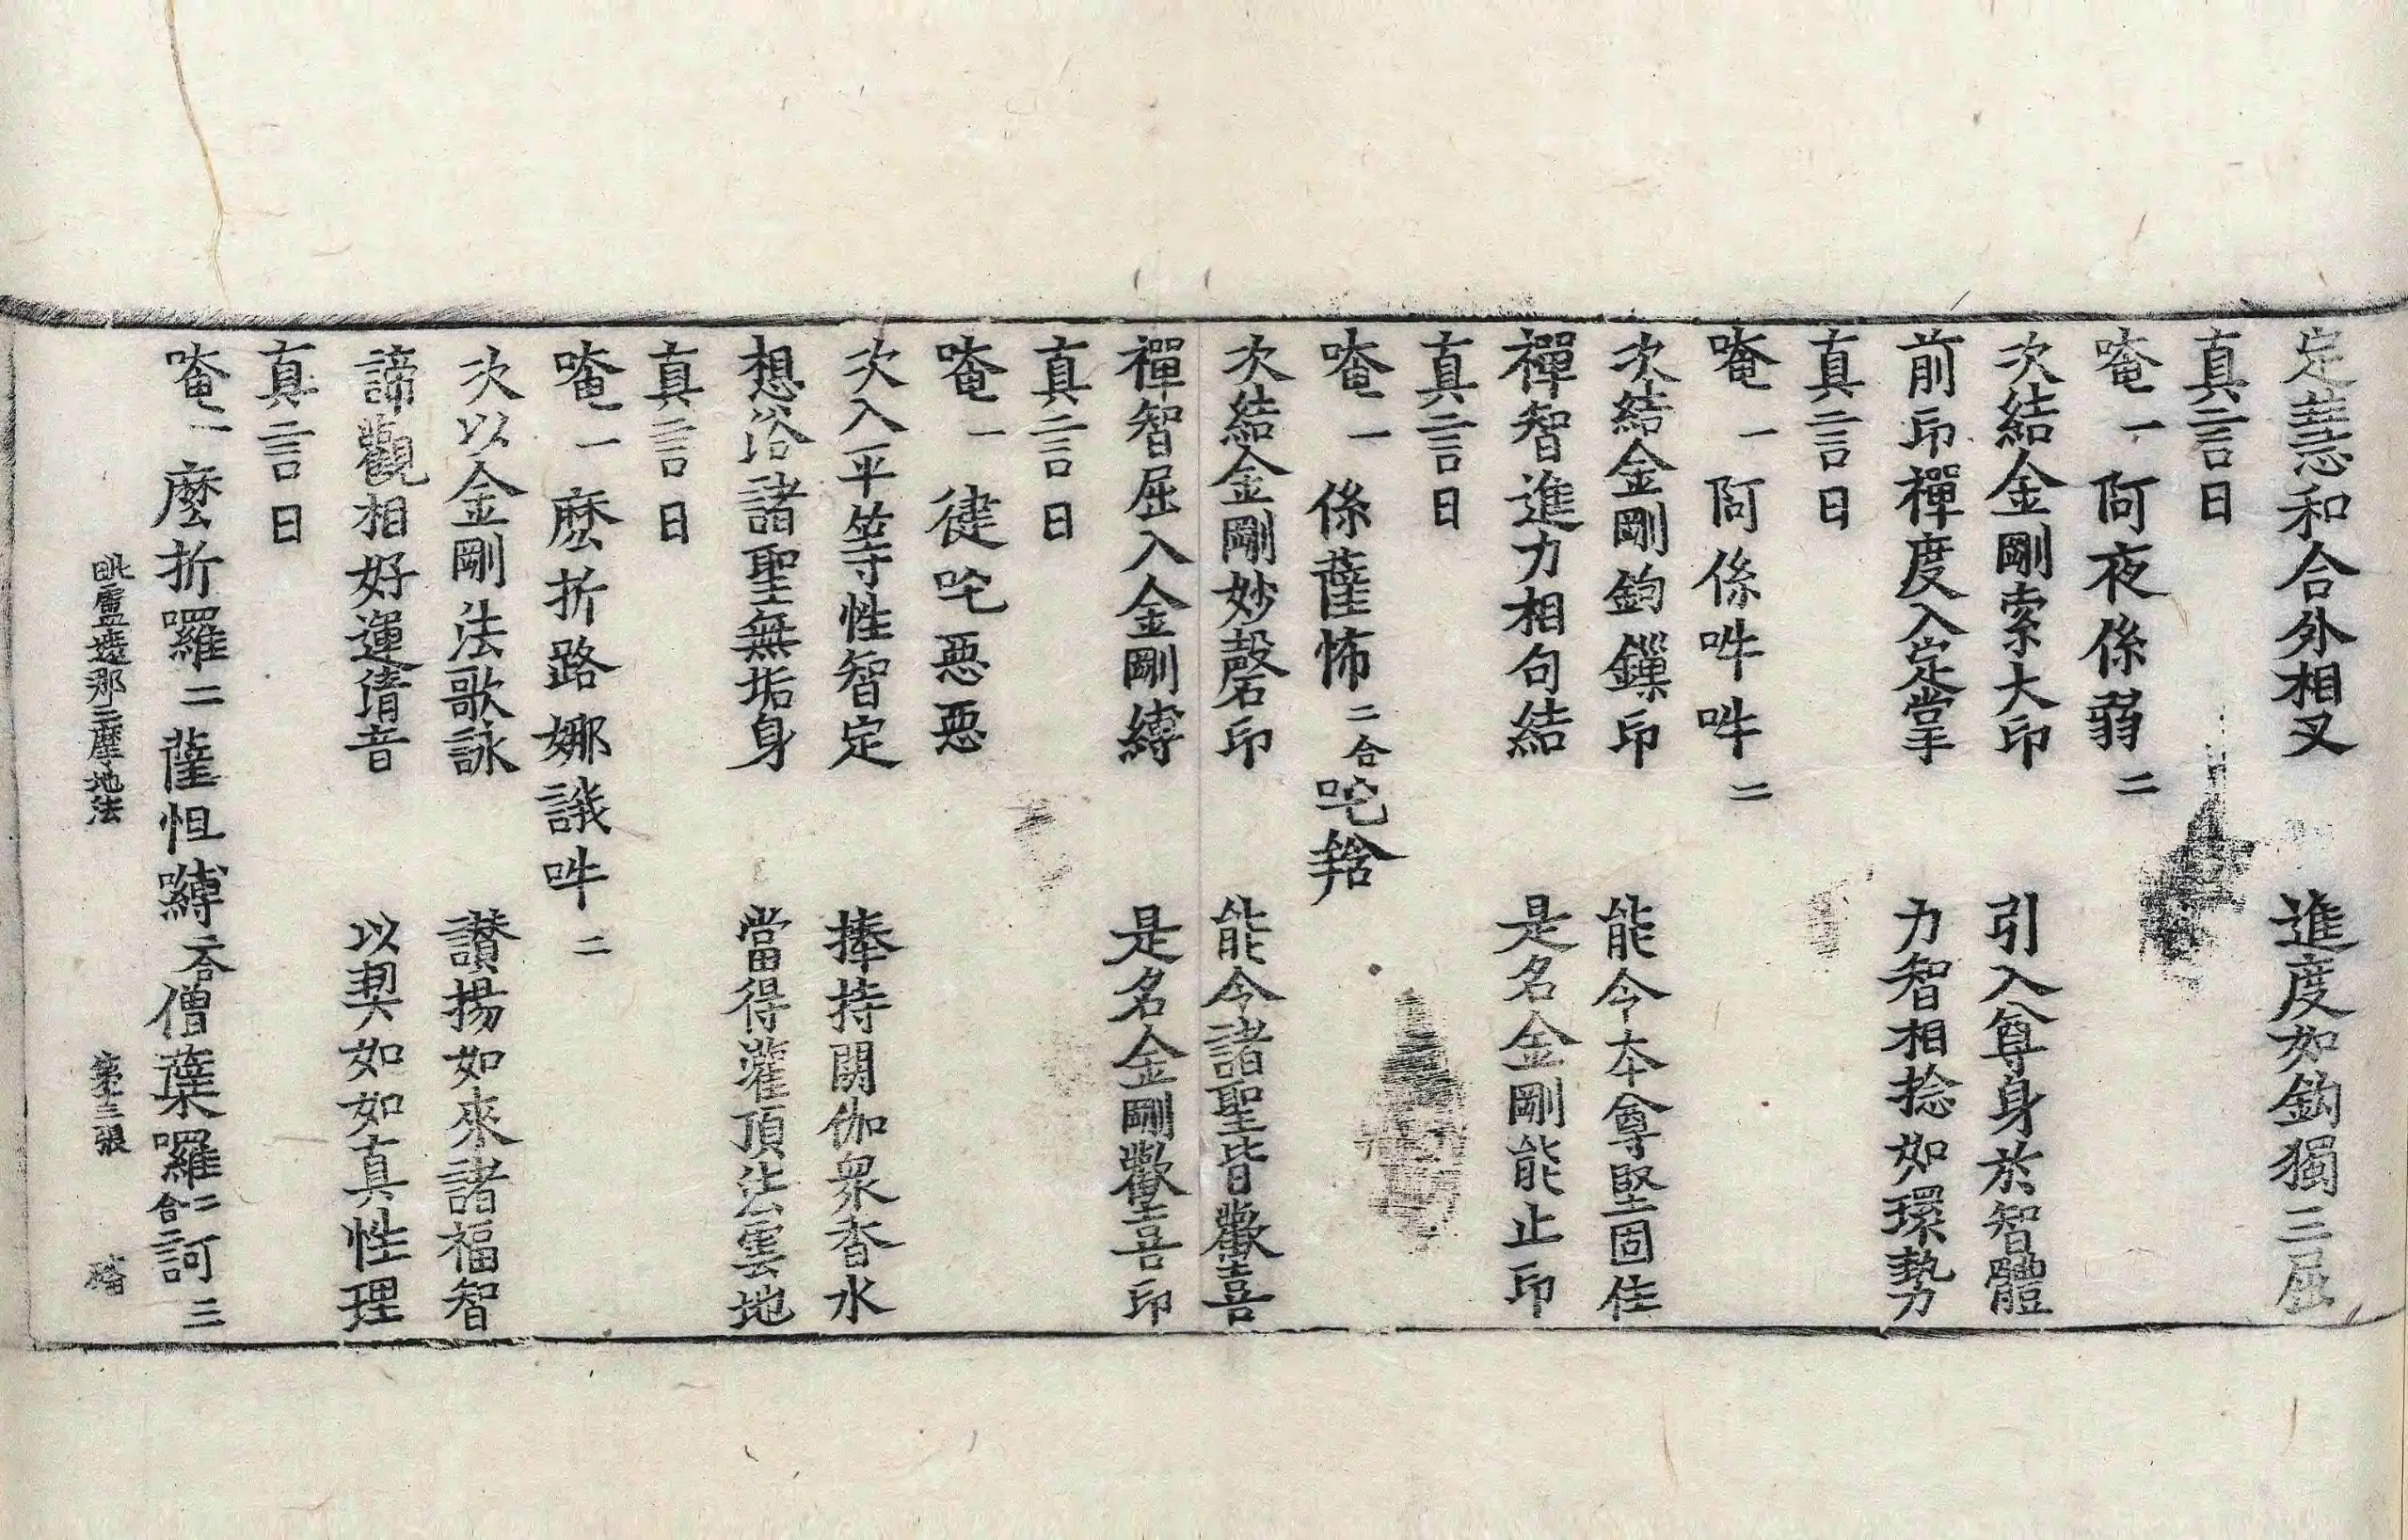 定慧和合外相叉　進度如鉤獨三屈
真言曰
唵一阿夜係弱二
次結金剛索大印　引入尊身於智體
前印禪度入定掌　力智相捻如環勢
真言曰
唵一阿係吽吽二
次結金剛鉤鏁印　能令本尊堅固住
禪智進力相句結　是名金剛能止印
真言曰
唵一係薩怖二合吒𤙖
次結金剛妙磬印　能令諸聖皆歡喜
禪智屈入金剛縛　是名金剛歡喜印
真言曰
唵一徤吒惡惡
次入平等性智定　捧持閼伽衆香水
想浴諸聖無垢身　當得灌頂法雲地
真言曰
唵一麽折路娜誐吽二
次以金剛法歌詠　讃揚如來諸福智
諦觀相好運清音　以契如如真性理
真言曰
唵一麽折囉二薩怛嚩二合僧葉囉二合訶三
毗盧遮那三摩地法　第三張